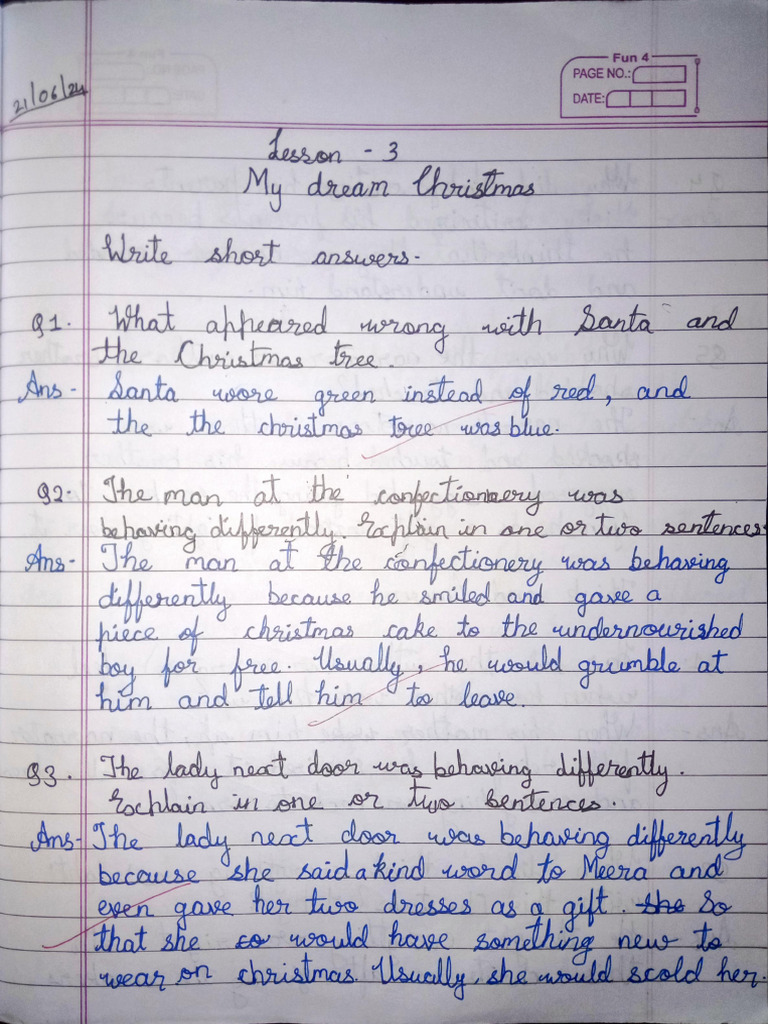 Fun 4
PAGE NO.:
DATE:
21/06/24
Lesson - 3
My dream Christmas
Write short answers.
Q1. What appeared wrong with Santa and
the Christmas tree.
Ans- Santa wore green instead of red, and
the the christmas tree was blue.
Q2. The man at the confectionery was
behaving differently. Explain in one or two sentences.
Ans- The man at the confectionery was behaving
differently because he smiled and gave a
piece of christmas cake to the undernourished
boy for free. Usually, he would grumble at
him and tell him to leave.
Q3. The lady next door was behaving differently.
Exchlain in one or two sentences.
Ans- The lady next door was behaving differently
because she said a kind word to Meera and
even gave her two dresses as a gift. she So
that she so would have something new to
wear on christmas. Usually, she would scold her.